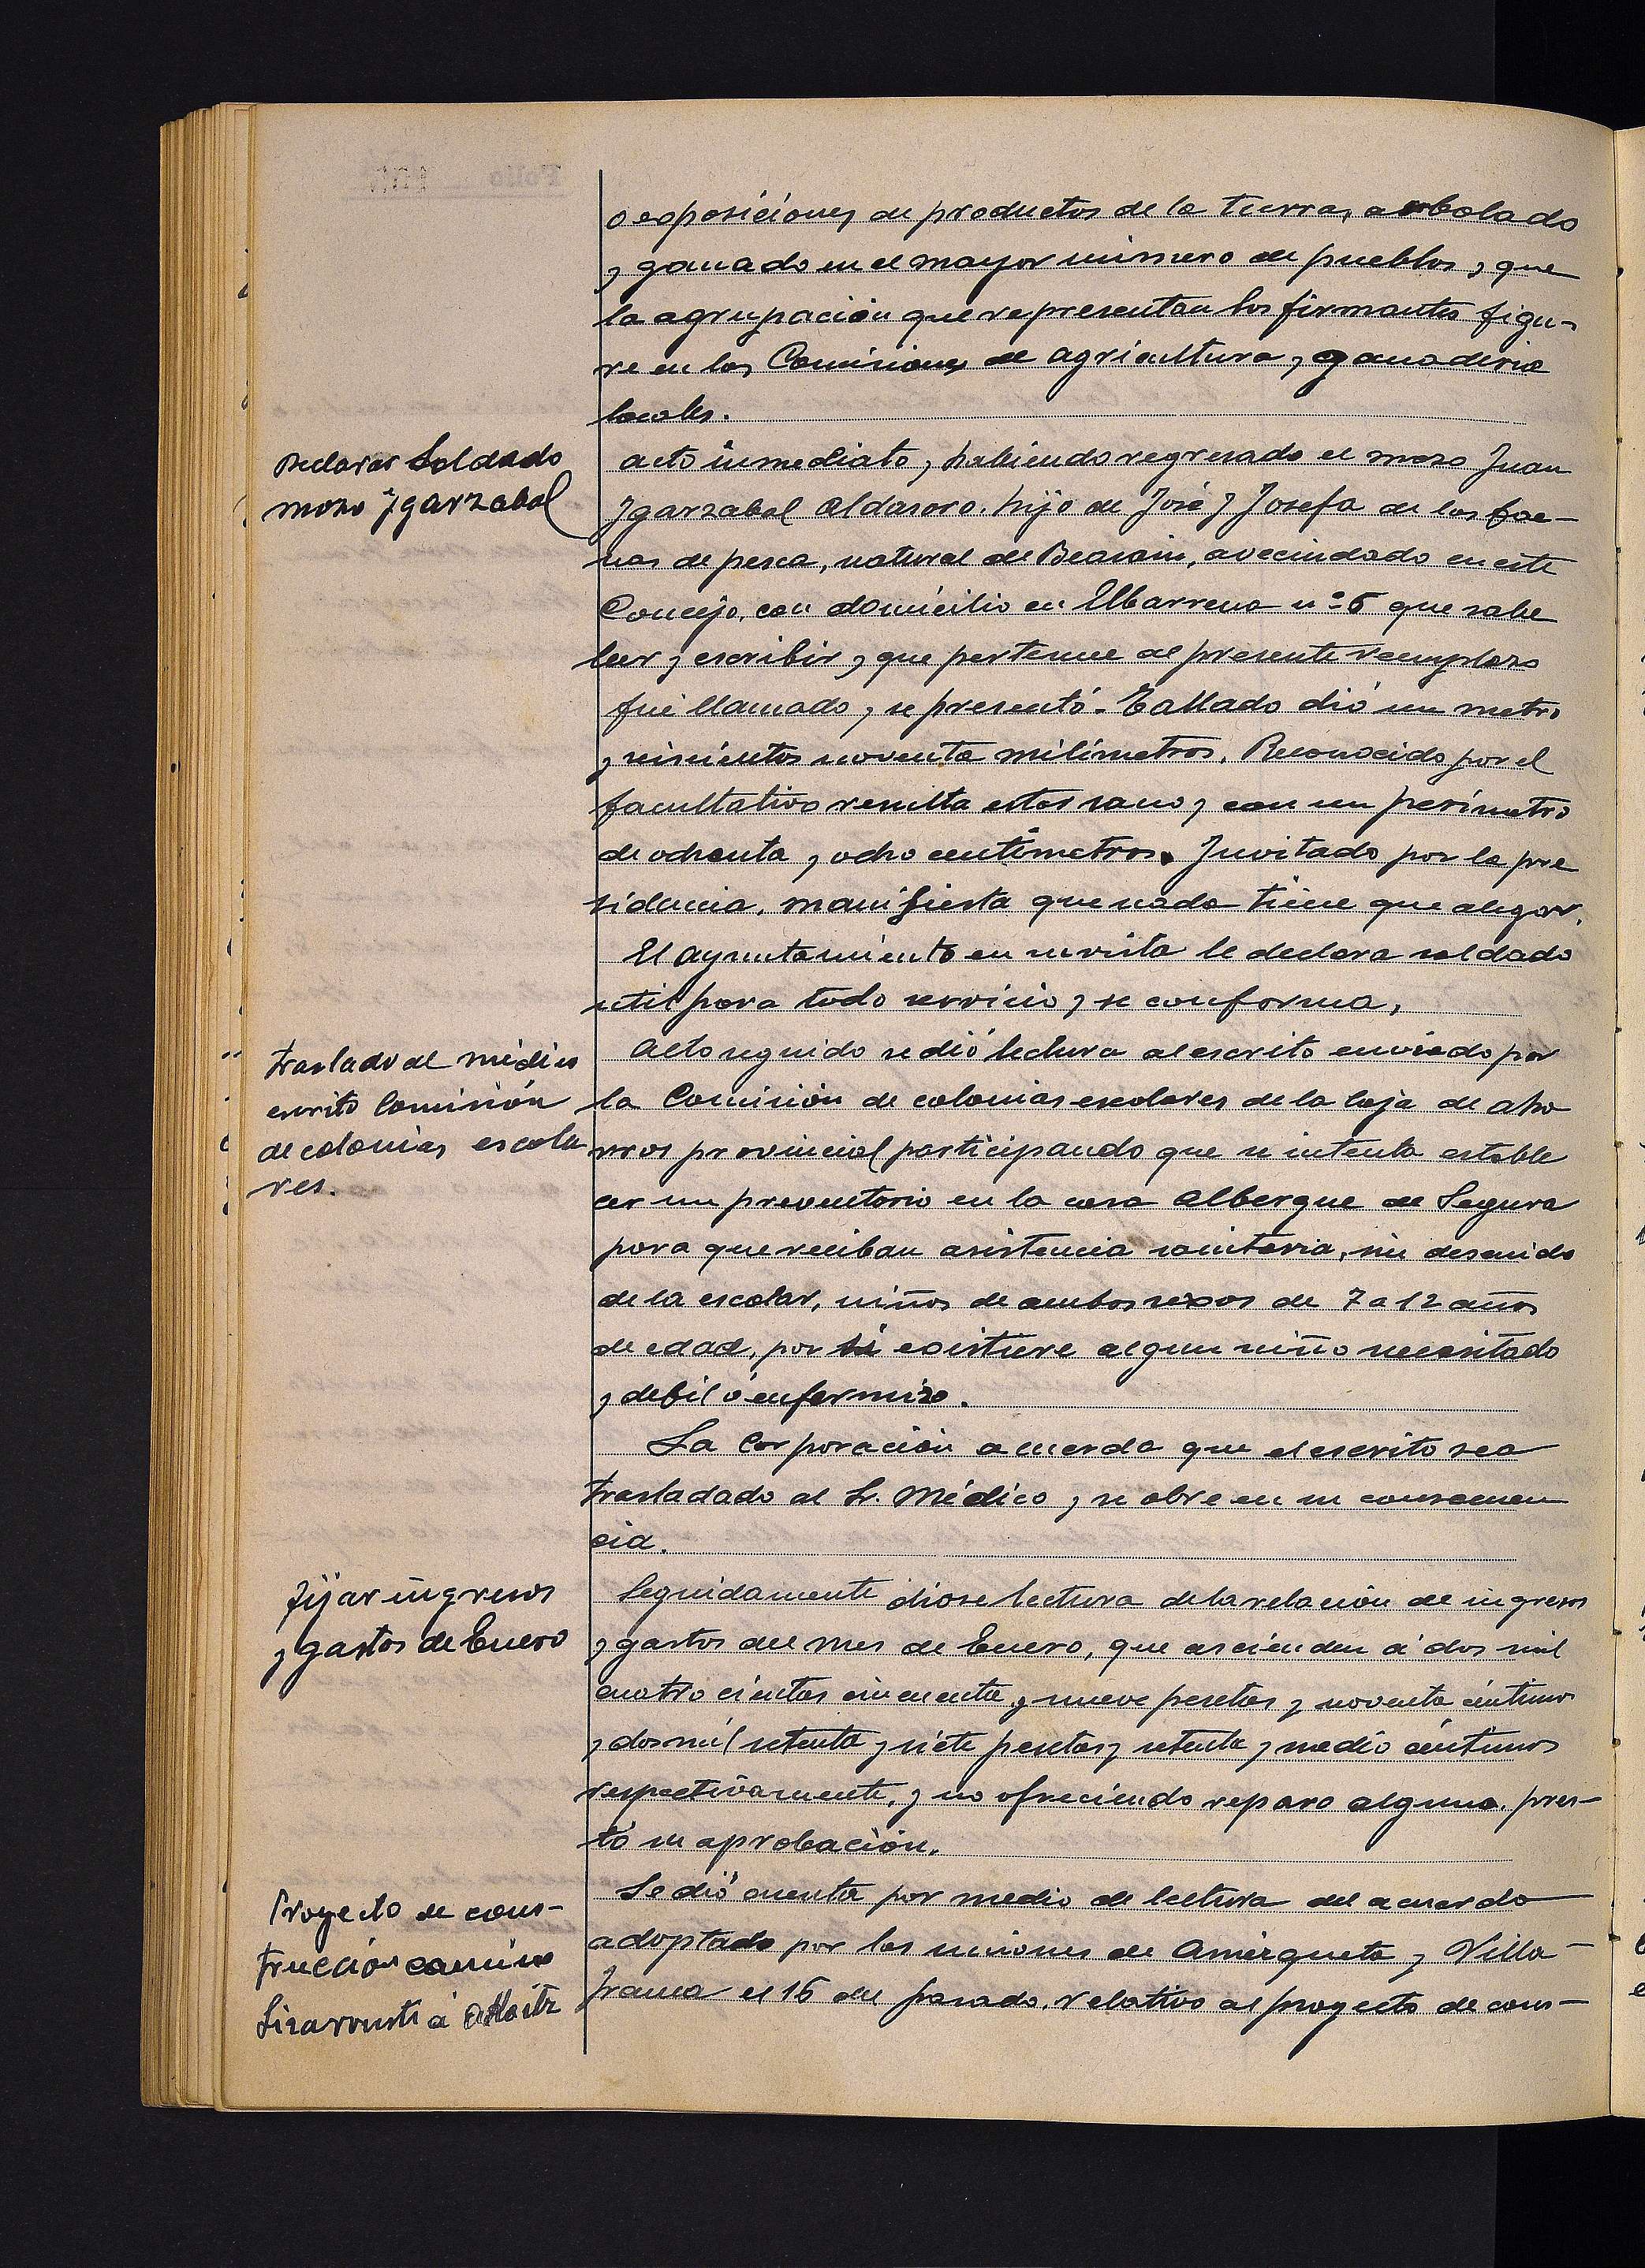 o exposiciones de productos de la tierra, arbolado
y ganado en el mayor número de pueblos, y que
la agrupación que representan los firmantes figu-
re en las Comisiones de agricultura y ganaderia
locales.
Declarar Soldado
mozo Ygarzabal
acto inmediato, habiendo regresado el mozo Juan
Ygarzabal Aldasoro, hijo de José y Josefa de las fae-
nas de pesca, natural de Beasain, avecindado en este
Concejo, con domicilio en Elbarrena nº 6 que sabe
leer y escribir y que pertenece al presente reemplazo
fué llamado y se presentó. Tallado dió un metro
y seiscientos noventa milímetros. Reconocido por el
facultativo resulta estar sano y con un perímetro
de ochenta y ocho centímetros. Invitado por la pre
sidencia, manifiesta que nada tiene que alegar.
El ayuntamiento en su vista le declara soldado
util para todo servicio y se conforma.
Traslado al médico
escrito Comisión
de colonias escola
res.
Acto seguido se dió lectura al escrito enviado por
la Comisión de colonias escolares de la Caja de Aho
rros provincial participando que se intenta estable
cer un preventorio en la casa albergue de Segura
para que reciban asistencia sanitaria, sin descuido
de la escolar, niños de ambos sexos de 7 a 12 años
de edad, por si existiere algun niño necesitado
y debil ó enfermizo.
La Corporación acuerda que el escrito sea
trasladado al Sr. Médico y se obre en su consecuen
cia.
Fijar ingresos
y gastos de Enero
Seguidamente diose lectura de la relación de ingresos
y gastos del mes de Enero, que ascienden á dos mil
cuatro cientas cincuenta y nueve pesetas y noventa céntimos
y dos mil setenta y siete pesetas y setenta y medio céntimos
respectivamente, y no ofreciendo reparo alguno, pres-
tó su aprobación.
Proyecto de cons-
trucción camino
Lizarrusti á Ataitz
Se dió cuenta por medio de lectura del acuerdo
adoptado por las uniones de Amézqueta y Villa-
franca el 16 del pasado, relativo al proyecto de cons-